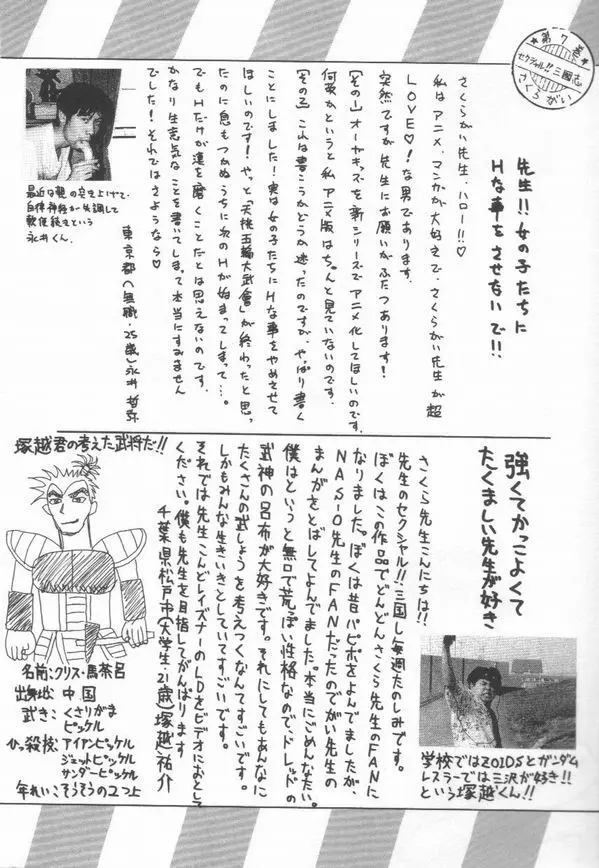 ★第7巻★
セクシャル!!三國志
さくらがい
先生!!女の子たちに
Hな事をさせないで!!
さくらがい先生、ハロー!!♡
私はアニメ・マンガが大好きで、さくらがい先生が超
LOVE♡!な男であります。
突然ですが先生にお願いがふたつあります!
【その1】オーヤキッズを新シリーズでアニメ化してほしいのです。
何故かというと私、アニメ版はちゃんと見ていないのです。
【その2】これは書こうかどうか迷ったのですが、やっぱり書く
ことにしました!実は女の子たちにHな事をやめさせて
ほしいのです!やっと「天桃五輪大武會」が終わったと思っ
たのに息もつかぬうちに次のHが始まってしまって…。
でもHだけが漢を磨くことだとは思えないのです。
かなり生意気なことを書いてしまって本当にすみません
でした!それではさようなら♡
東京都(無職・25歳)永井哲弥
最近は親の突き上げで、
自律神経が失調して
軟便続きという
永井くん。
強くてかっこよくて
たくましい先生が好き
さくら先生こんにちは!!
先生のセクシャル!!三国し毎週たのしみです。
ぼくはこの作品でどんどんさくら先生のFANに
なりました。ぼくは昔パピポをよんでましたが、
NAS-O先生のFANだったのでがい先生の
まんがをとばしてよんでました。本当にごめんなたい。
僕はというと無口で荒っぽい性格なので、ドレッドの
武神の呂布が大好きです。それにしてもあんなに
たくさんの武しょうを考えつくなんてすごいです。
しかもみんな生きいきとしていてすごいです。
それでは先生こんどレイズナーのLDをビデオにおとして
ください。僕も先生を目指してがんばります
千葉県松戸市(大学生・21歳)塚越祐介
学校ではZOIDSとガンダム
レスラーでは三沢が好き!!
という塚越くん!!
塚越君の考えた武将だ!!
名前:クリス・馬茶呂
出身地:中国
武き:くさりがま
ピッケル
ひっ殺技:アイアンピッケル
ジェットピッケル
サンダーピッケル
年れい:そうそうの2つ上